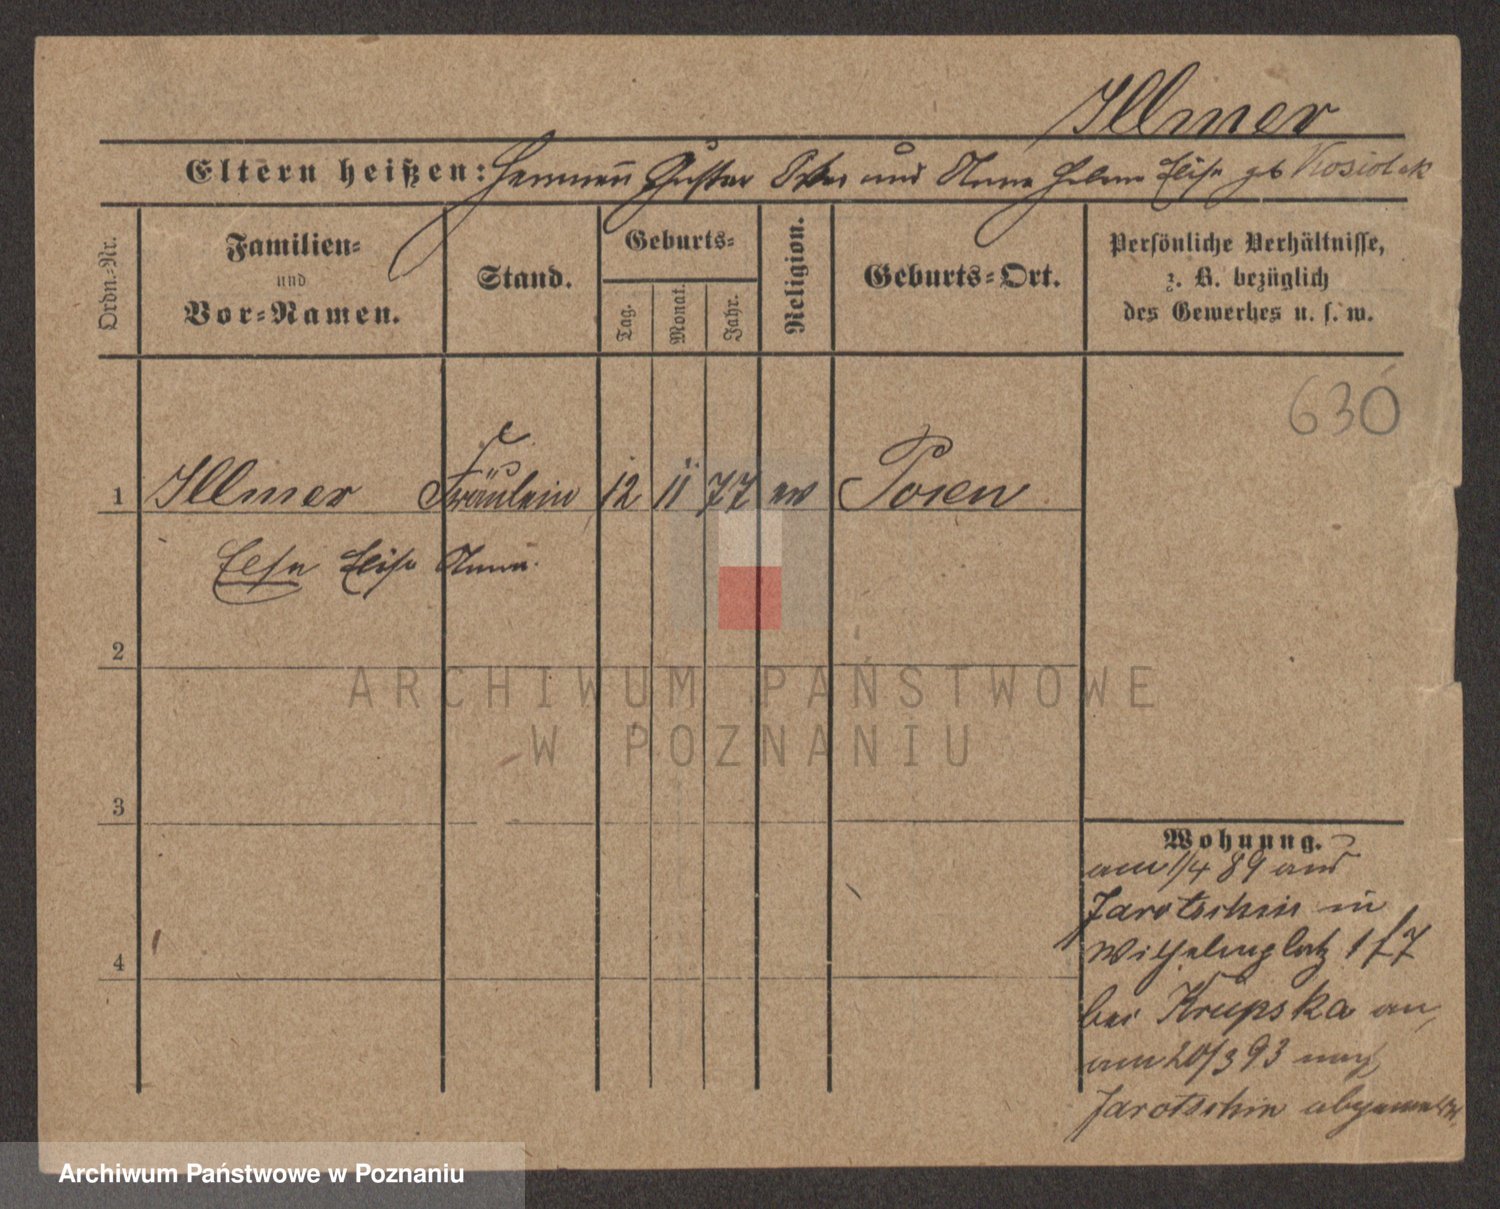 Illmer
Eltern heißen: Hermann Gustav und Anna Helene Elise geb Kosiolek
Ordn.-Nr.
Familien-
und
Vor-Namen.
Stand.
Geburts-
Tag.
Monat.
Jahr.
Religion.
Geburts-Ort.
Persönliche Verhältnisse,
z. B. bezüglich
des Gewerbes u. s. w.
630
1 Illmer Fräulein 12 11 77 ev Posen
Elise Anna
2
ARCHIWUM PAŃSTWOWE
W POZNANIU
3
Wohnung.
am 1/4 89 aus
Jarotschin in
Wilhelmsplatz 1 f 7
4
bei Krupska an,
am 20/3 93 nach
Jarotschin abgemeldet.
Archiwum Państwowe w Poznaniu